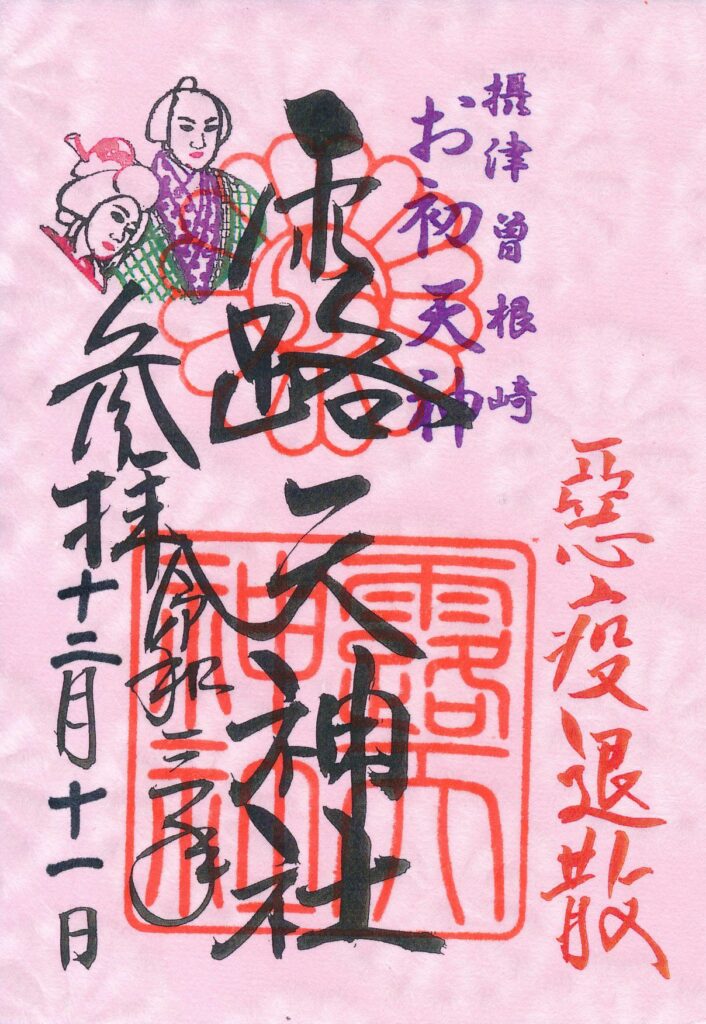 惡疫退散
摂津曽根崎
お初天神
露天神社
露天
神社
参拝
令和三年
十二月十一日